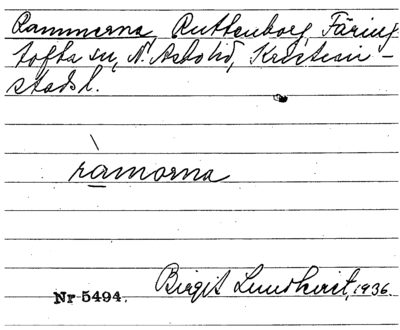 Rammerna, Ruttenborg, Färing
tofta sn, N. Åsbo hd, Kristian-
stads l.
ràmorna
Birgit Lundkvist, 1936.
Nr 5494.